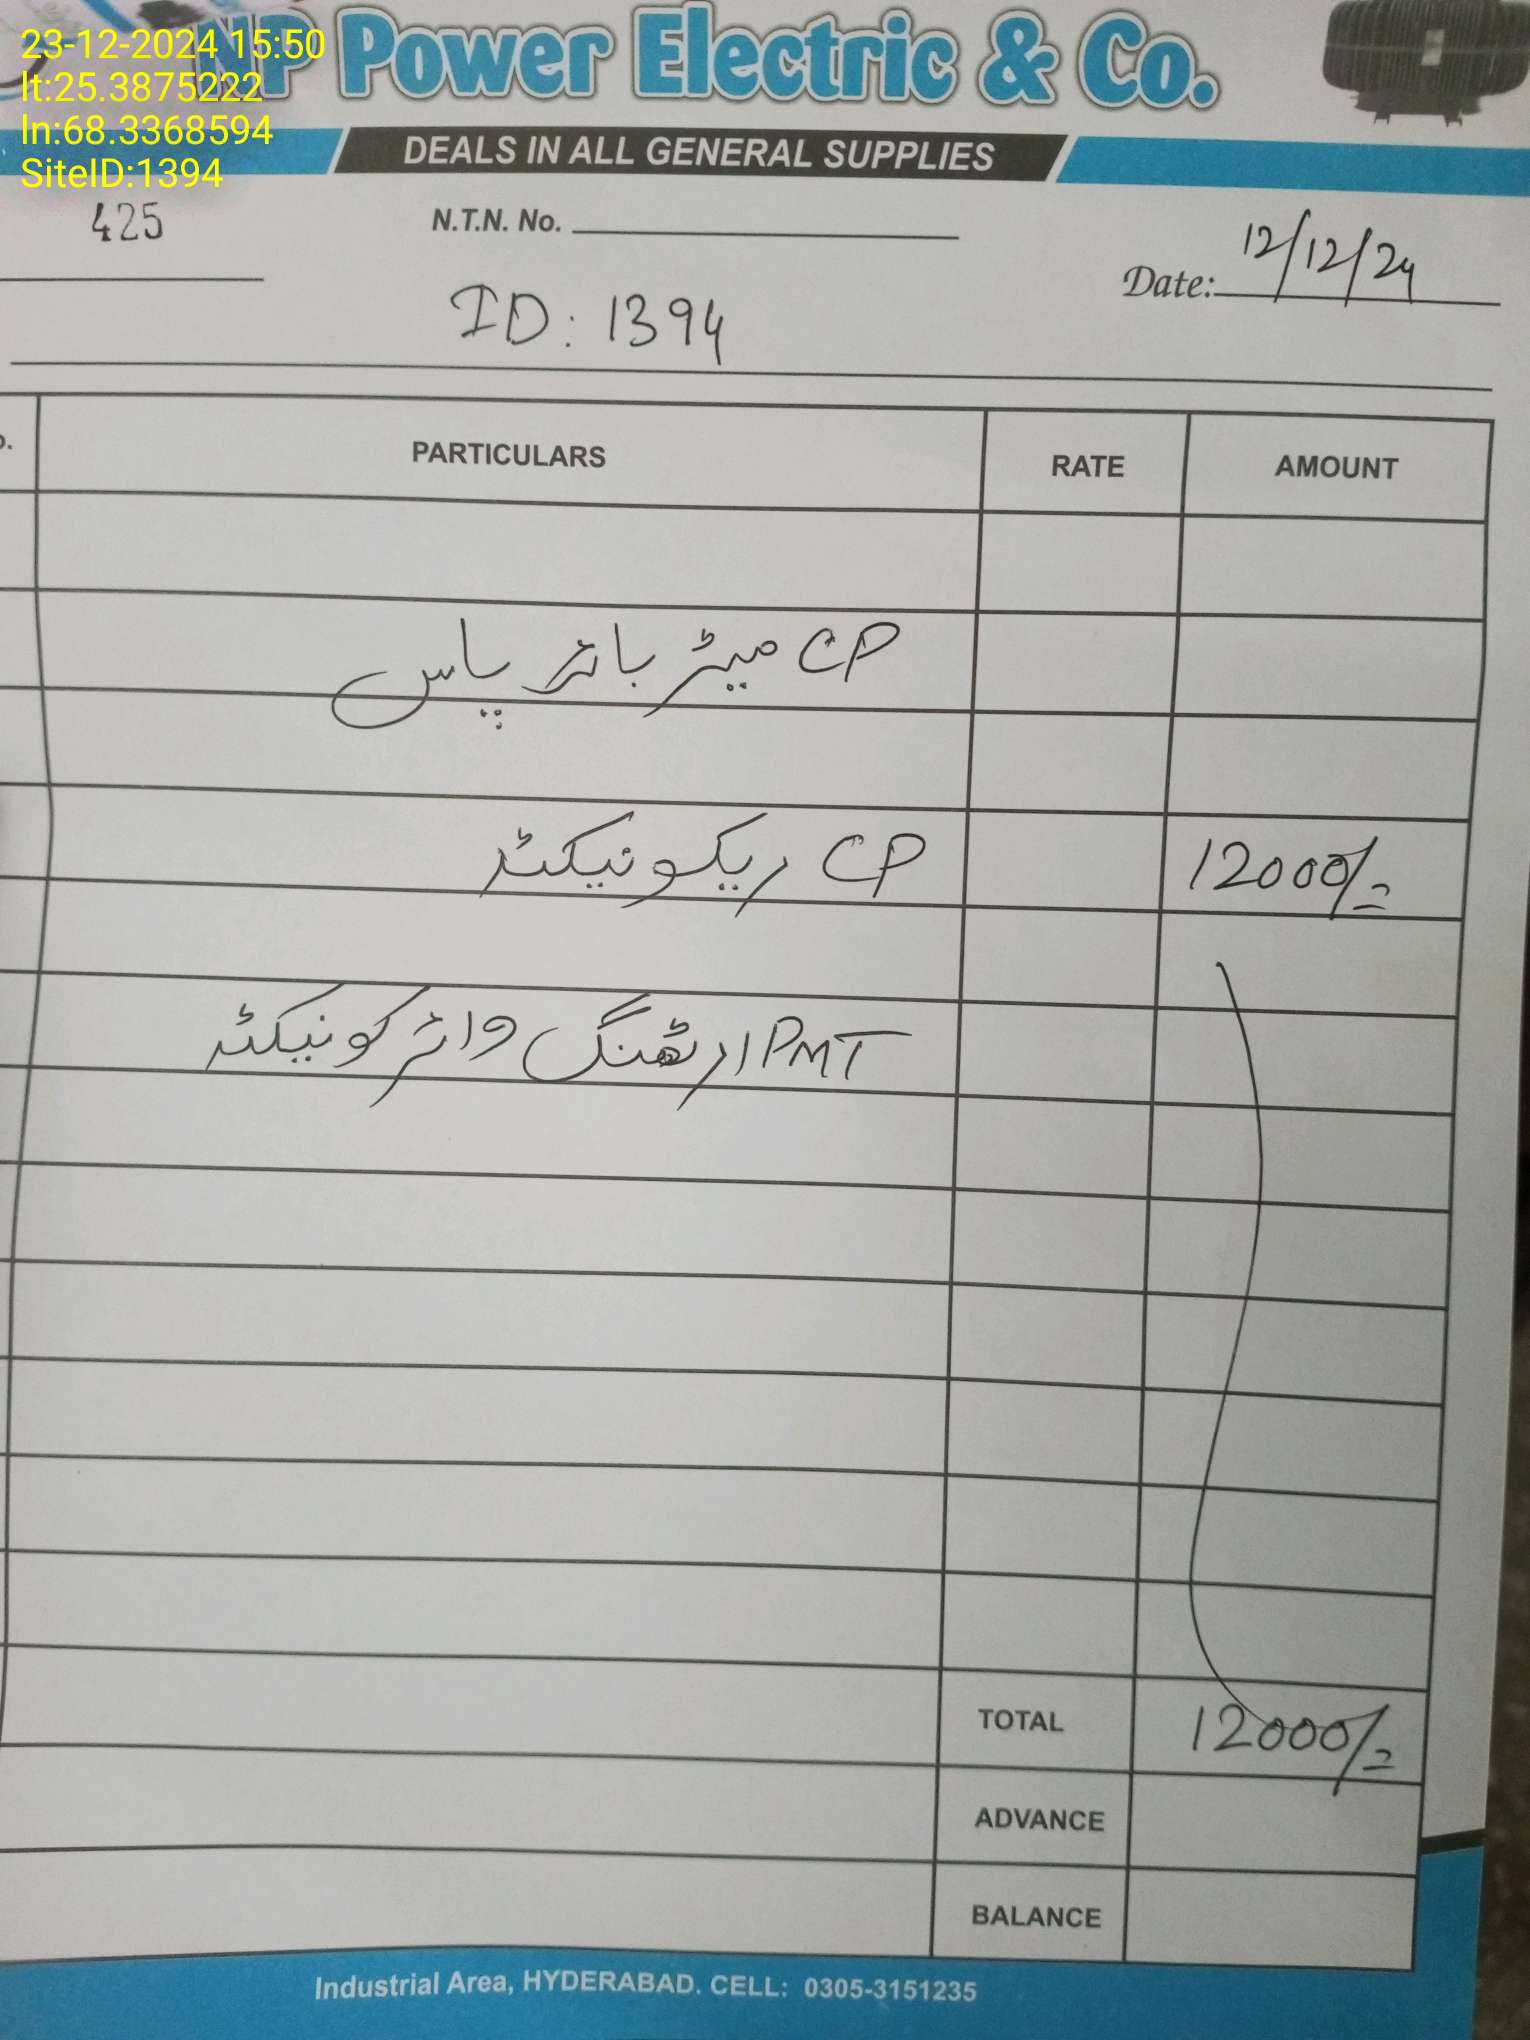 23-12-2024 15:50
lt:25.3875222
ln:68.3368594
SiteID:1394
NP Power Electric & Co.
DEALS IN ALL GENERAL SUPPLIES
425
N.T.N. No.
Date: 12/12/24
ID: 1394
PARTICULARS RATE AMOUNT
CP میٹر بائر پاس
CP ریکونیکٹر 12000/=
PMT ارٹھنگ وائر کونیکٹر
TOTAL 12000/=
ADVANCE
BALANCE
Industrial Area, HYDERABAD. CELL: 0305-3151235